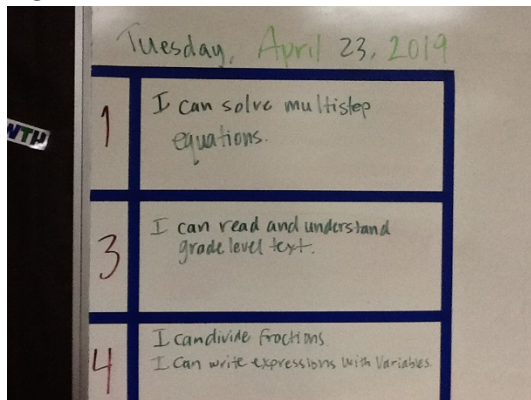 Tuesday, April 23, 2019
1
I can solve multistep
equations.
3
I can read and understand
grade level text.
4
I can divide fractions
I can write expressions with variables.